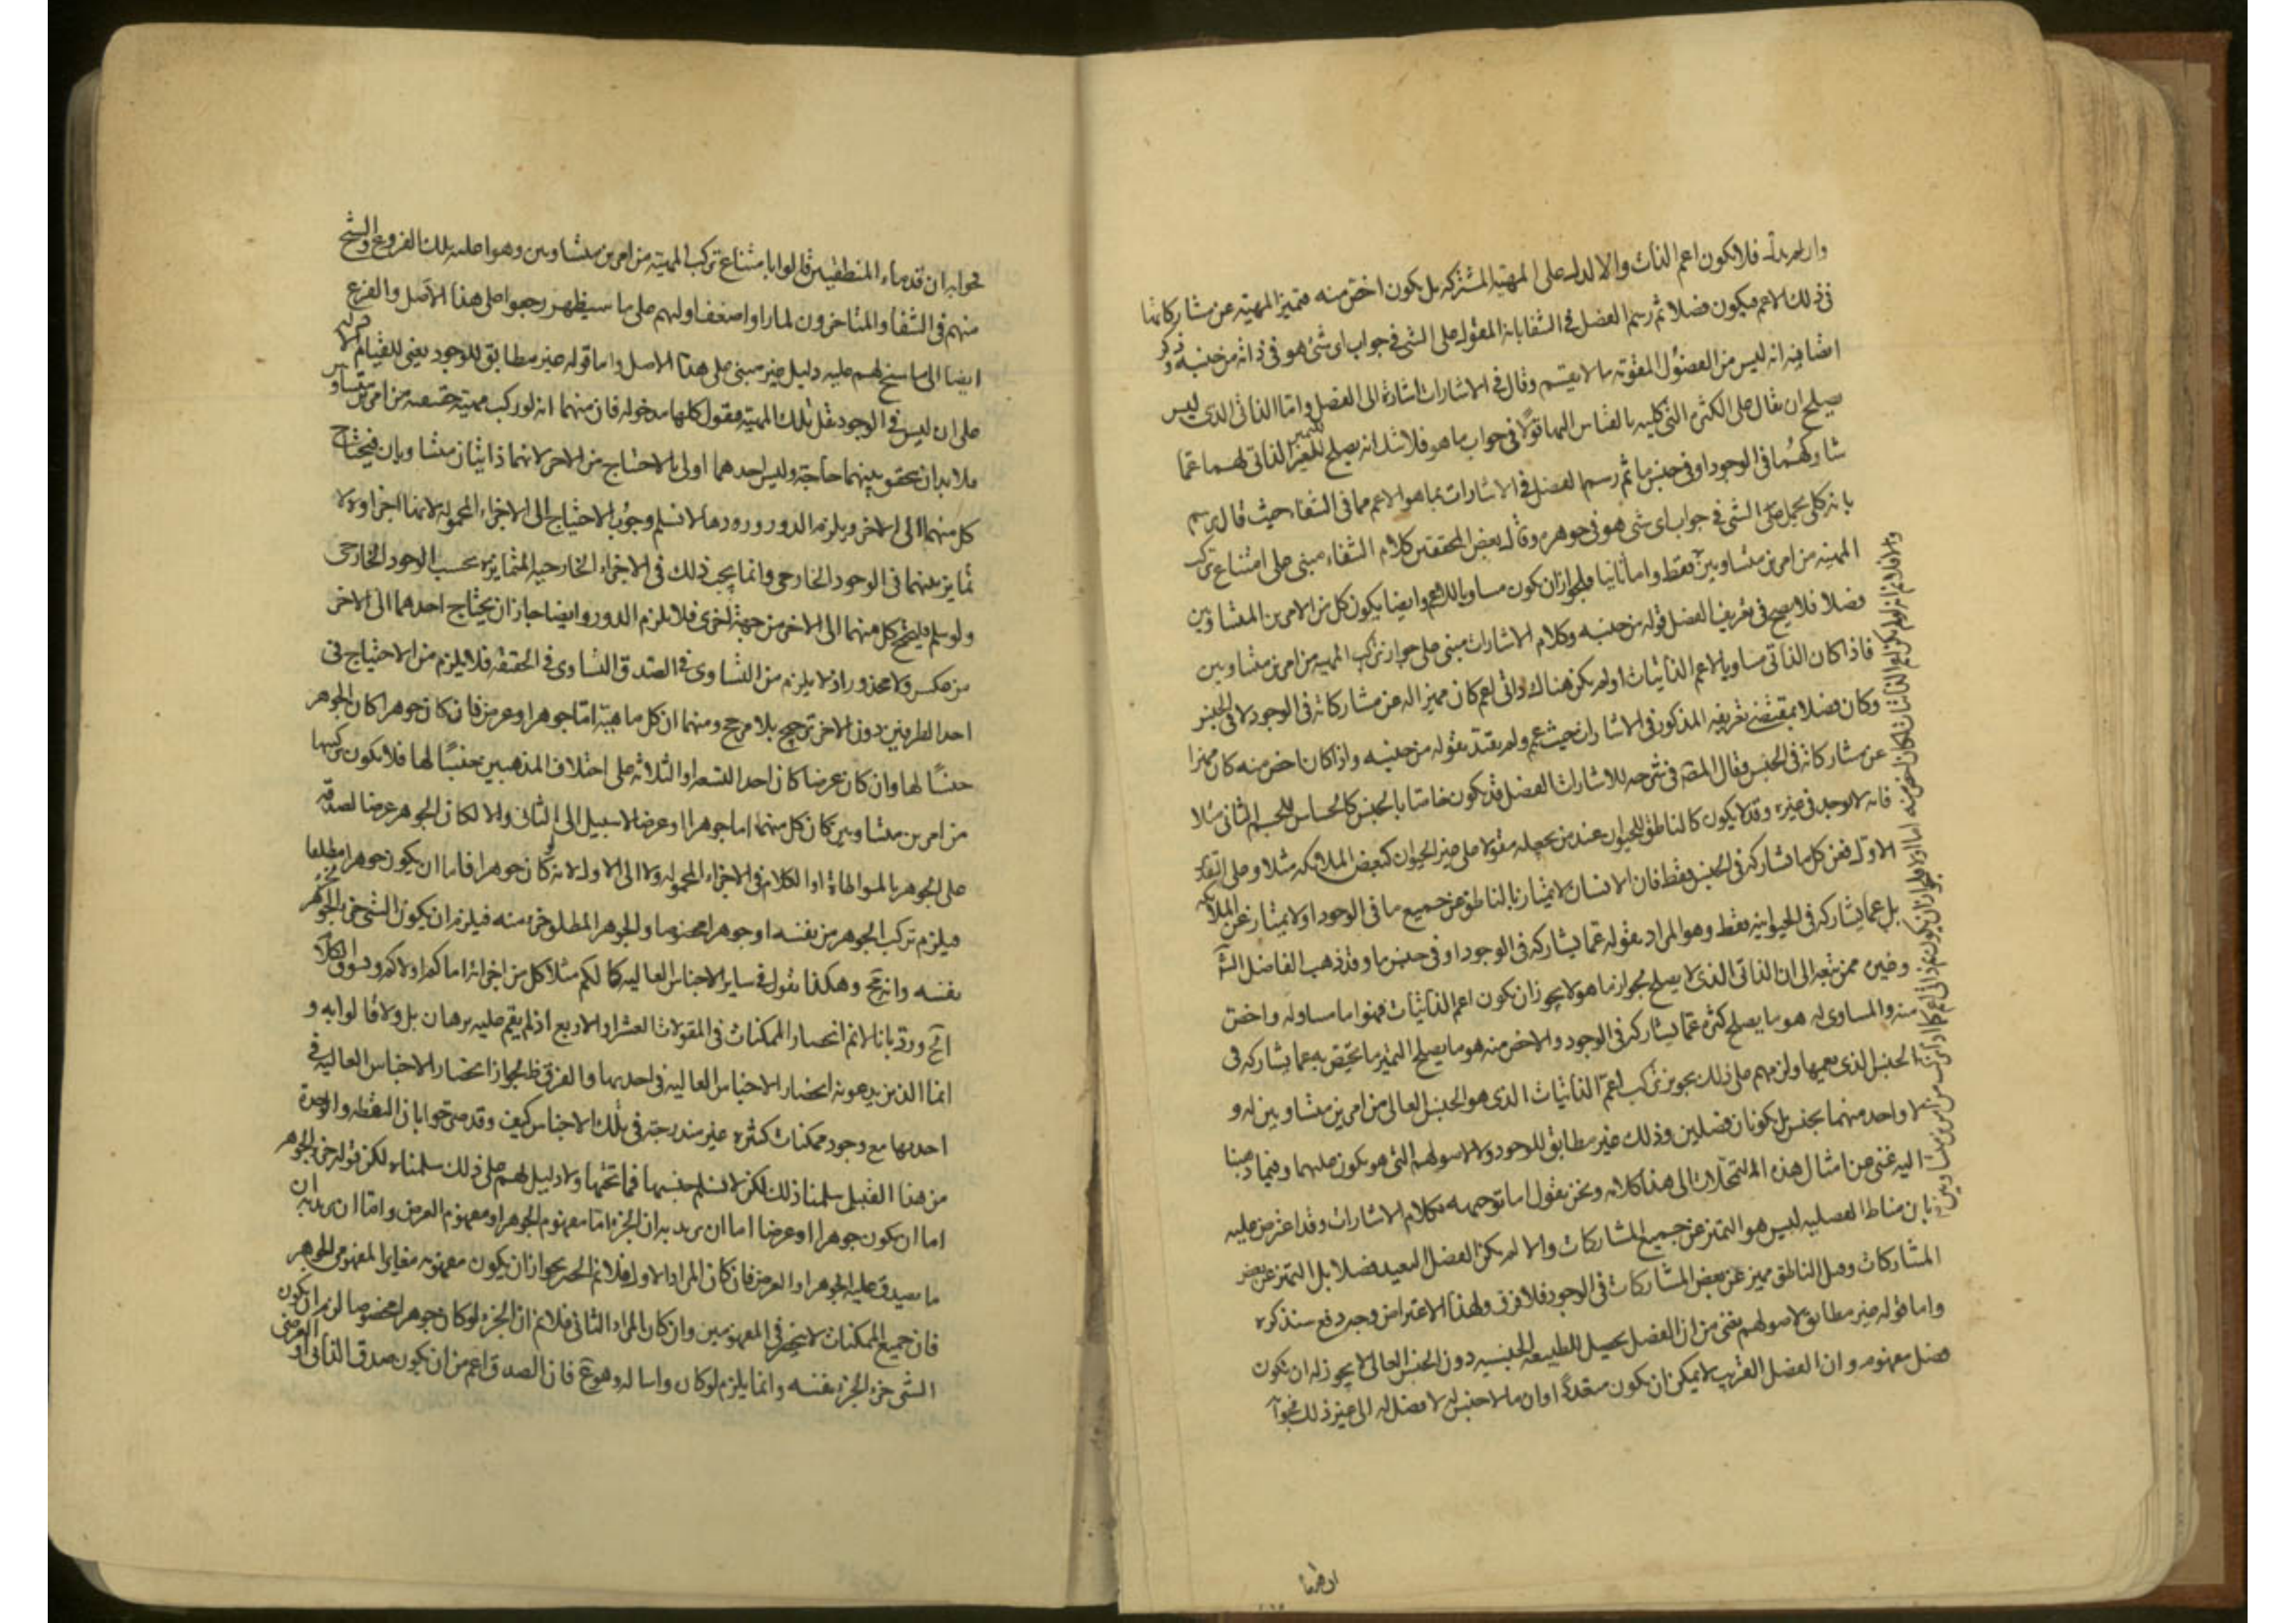 وان لم يدل فلا يكون اعم الذاتيات والا لدل على المهية المشتركة بل يكون اخص منه فتميز المهية عن مشاركاتها
في ذلك الاعم فيكون فصلا ثم رسم الفصل في الشفا بانه المقول على الشئ في جواب اى شئ هو في ذاته من جنسه وذكر
ايضا فيه انه ليس من الفصول المقومة ما لا يقسم وقال في الاشارات اشارة الى الفصل واما الذاتى الذى ليس
يصلح ان يقال على الكثرة التى كليته بالقياس اليها قولا في جواب ما هو فلا شك انه يصلح للتميز الذاتى لهما عما
شاركهما في الوجود او في جنس ما ثم رسم الفصل في الاشارات بما هو الاعم مما في الشفاء حيث قال يرسم
بانه كلى يحمل على الشئ في جواب اى شئ هو في جوهره وقال بعض المحققين كلام الشفاء مبنى على امتناع تركب
المهية من امرين متساويين فقط واما ثانيا فلجواز ان يكون مساويا للاعم وايضا يكون كل من الامرين المتساويين
فصلا فلا يصح في تعريف الفصل قوله من جنسه وكلام الاشارات مبنى على جواز تركب المهية من امرين متساويين
فاذا كان الذاتى مساويا لاعم الذاتيات او لم يكن هناك ذاتى اعم كان مميزا له عن مشاركاته في الوجود لا في الجنس
وكان فصلا بمقتضى تعريفه المذكور في الاشارات حيث عمم ولم يقيد بقوله من جنسه واذا كان اخص منه كان مميزا
عن مشاركاته في الجنس وقال المصه في شرحه للاشارات الفصل قد يكون خاصا بالجنس كالحساس للجسم النامى مثلا
فانه لا يوجد في غيره وقد لا يكون كالناطق للحيوان عند من يجعله مقولا على غير الحيوان كبعض الملائكة مثلا وعلى التقدير
الاول فعن كل ما يشاركه في الجنس فقط فان الانسان لا يمتاز بالناطق عن جميع ما في الوجود اذ لا يمتاز عن الملائكة
بل عما يشاركه في الحيوانية فقط وهو المراد بقوله عما يشاركه في الوجود او في جنس ما وقد ذهب الفاضل الش
وغيره ممن تبعه الى ان الذاتى الذى لا يصلح لجواب ما هو لا يجوز ان يكون اعم الذاتيات فهو اما مساو له واخص
منه والمساوى له هو ما يصلح لتميزه عما يشاركه في الوجود والاخص منه هو ما يصلح لتميز ما يختص به عما يشاركه في
الجنس الذى يعمها ولزمهم على ذلك تجويز تركب اعم الذاتيات الذى هو الجنس العالى من امرين متساويين له و
لا واحد منهما بجنس بل يكونان فصلين وذلك غير مطابق للوجود ولا لاصولهم التى هو يكون عليهما وفيما ذهبنا
اليه غنى عن امثال هذه التمحلات الى هذا كلامه ونحن نقول اما توجيهه لكلام الاشارات وقد اعترض عليه
بان مناط الفصلية ليس هو التميز عن جميع المشاركات والا لم يكن الفصل البعيد فصلا بل التميز عن بعض
المشاركات وفصل الناطق مميز عن بعض المشاركات في الوجود فلا فرق ولهذا الاعتراض وجه دفع سنذكره
واما قوله غير مطابق لاصولهم يعنى من ان الفصل يحصل للطبيعة الجنسية دون الجنس العالى لا يجوز له ان يكون
فصل مقومه وان الفصل القريب لا يمكن ان يكون متعددا وان ما لا جنس له لا فصل له الى غير ذلك فجوا
فجوابه ان قدماء المنطقيين قالوا بامتناع تركب المهية من امرين متساويين وهو اصله تلك الفروع والشيخ
منهم في الشفا والمتاخرون لما راوا ضعف اولهم على ما سيظهر رجعوا على هذا الاصل والفرع
ايضا الى ما سنح لهم عليه دليل غير مبنى على هذا الاصل واما قوله غير مطابق للوجود يعنى للقيام
على ان ليس في الوجود مثل تلك المهية فنقول كلها مدخولة فان منهما انه لو تركب مهية حقيقية من امرين متساويين
فلا بد ان يتحقق بينهما حاجة وليس احدهما اولى بالاحتياج من الاخر لانهما ذاتيان متساويان فيحتاج
كل منهما الى الاخر ويلزم الدور ورد ها لا نسلم وجوب الاحتياج الى الاجزاء المحمولة لانها اجزاء ولا
تمايز بينهما في الوجود الخارجى وانما يجب ذلك في الاجزاء الخارجية المتمايزة بحسب الوجود الخارجى
ولو سلم فليحتج كل منهما الى الاخر من جهة اخرى فلا يلزم الدور وايضا جاز ان يحتاج احدهما الى الاخر
من عكس ولا محذور اذ لا يلزم من التساوى في الصدق التساوى في الحقيقة فلا يلزم من الاحتياج في
احد الطرفين دون الاخر ترجيح بلا مرجح ومنهما ان كل ماهية اما جوهر او عرض فان كان جوهرا كان الجوهر
جنسا لها وان كان عرضا كان احد التسعة او الثلاثة على اختلاف المذهبين جنسا لها فلا يكون تركبها
من امرين متساويين كان كل منهما اما جوهرا او عرضا لا سبيل الى الثانى والا لكان الجوهر عرضا لصدقه
على الجوهر بالمواطاة اذ الكلام في الاجزاء المحمولة ولا الى الاول لانه لو كان جوهرا فاما ان يكون جوهرا مطلقا
فيلزم تركب الجوهر من نفسه او جوهرا مخصوصا والجوهر المطلق جزء منه فيلزم ان يكون الشئ جزء لجزء
نفسه وانه مح وهكذا نقول في ساير الاجناس العالية كالكم مثلا كل من اجزائه اما كم او لا كم ويسوق الكلام
الخ ورد بانا لا نم انحصار الممكنات في المقولات العشر او الاربع اذ لم يقم عليه برهان بل ولا قالوا به و
انما الذين يدعونه انحصار الاجناس العالية في احديهما والفرق ظ لجواز انحصار الاجناس العالية في
احديهما مع وجود ممكنات كثيرة غير مندرجة في تلك الاجناس كيف وقد صرحوا بان النقطة والوحدة
من هذا القبيل سلمنا ذلك لكن لا نسلم جنسيتها فما تحتها ولا دليل لهم على ذلك سلمناه لكن قوله جزء الجوهر
اما ان يكون جوهرا او عرضا اما ان يريد به ان الجزء اما مفهوم الجوهر او مفهوم العرض واما ان يريد به ان
ما يصدق عليه الجوهر او العرض فان كان المراد الاول فلا نم الحصر بجواز ان يكون مفهومه مغايرا لمفهومى الجوهر
فان جميع الممكنات لا ينحصر في المفهومين وان كان المراد الثانى فلا نم ان الجزء لو كان جوهرا مخصوصا لزم ان يكون
الشئ جزء لجزء نفسه وانما يلزم لو كان ذاتيا له وهو مم فان الصدق اعم من ان يكون صدق الذاتى او العرضى